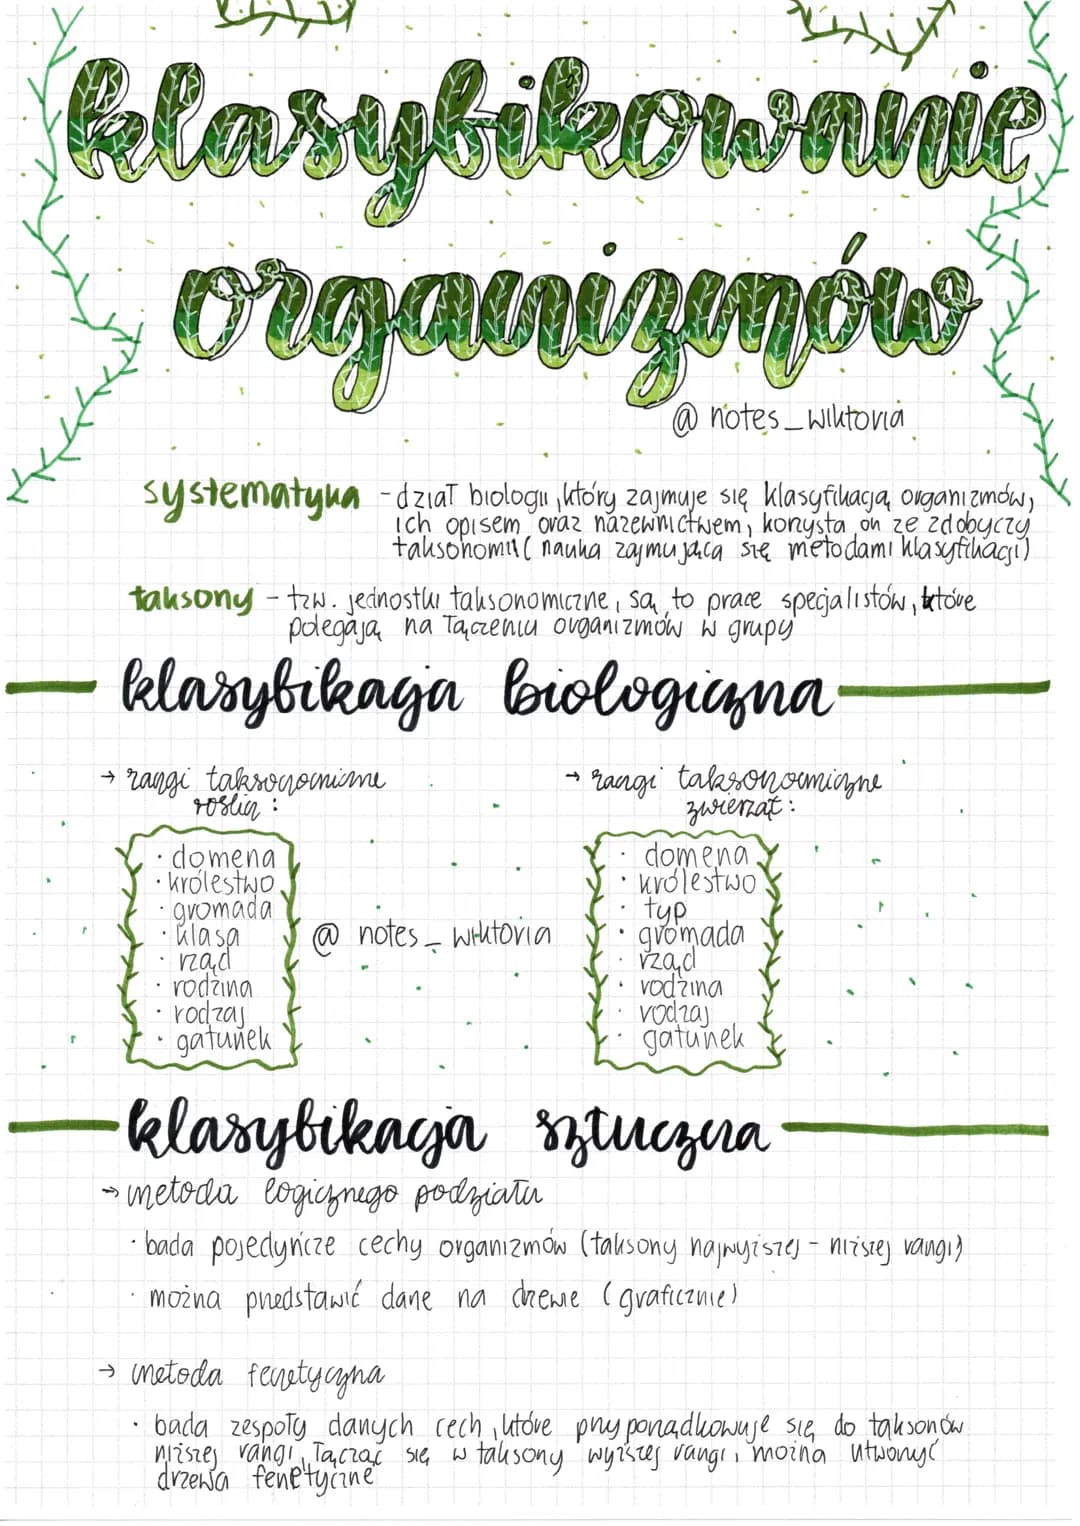 klasyfikowanie
organizmów
@ notes_wiktoria
systematyka - dział biologii, który zajmuje się klasyfikacją organizmów,
ich opisem oraz nazewnictwem, korzysta on ze zdobyczy
taksonomii (nauka zajmująca się metodami klasyfikacji)
taksony - tzw. jednostki taksonomiczne, są to prace specjalistów, które
polegają na łączeniu organizmów w grupy
klasyfikacja biologiczna
→ rangi taksonomiczne
roślin :
→ rangi taksonomiczne
zwierząt :
· domena
· królestwo
· gromada
· klasa
· rząd
· rodzina
· rodzaj
· gatunek
@ notes_wiktoria
· domena
· królestwo
· typ
· gromada
· rząd
· rodzina
· rodzaj
· gatunek
klasyfikacja sztuczna
→ metoda logicznego podziału
· bada pojedyńcze cechy organizmów (taksony najwyższej - niższej rangi)
· można przedstawić dane na drzewie (graficznie)
→ metoda fenetyczna
· bada zespoły danych cech, które przyporządkowuje się do taksonów
niższej rangi, łącząc się w taksony wyższej rangi, można utworzyć
drzewa fenetyczne